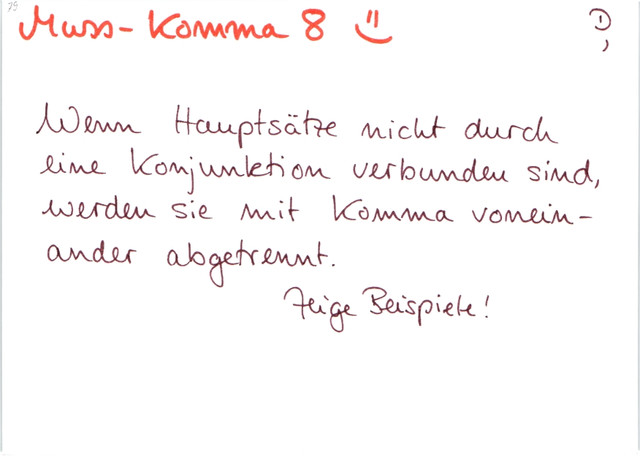 29
Muss-Komma 8
Wenn Hauptsätze nicht durch
eine Konjunktion verbunden sind,
werden sie mit Komma vonein-
ander abgetrennt.
Zeige Beispiele!